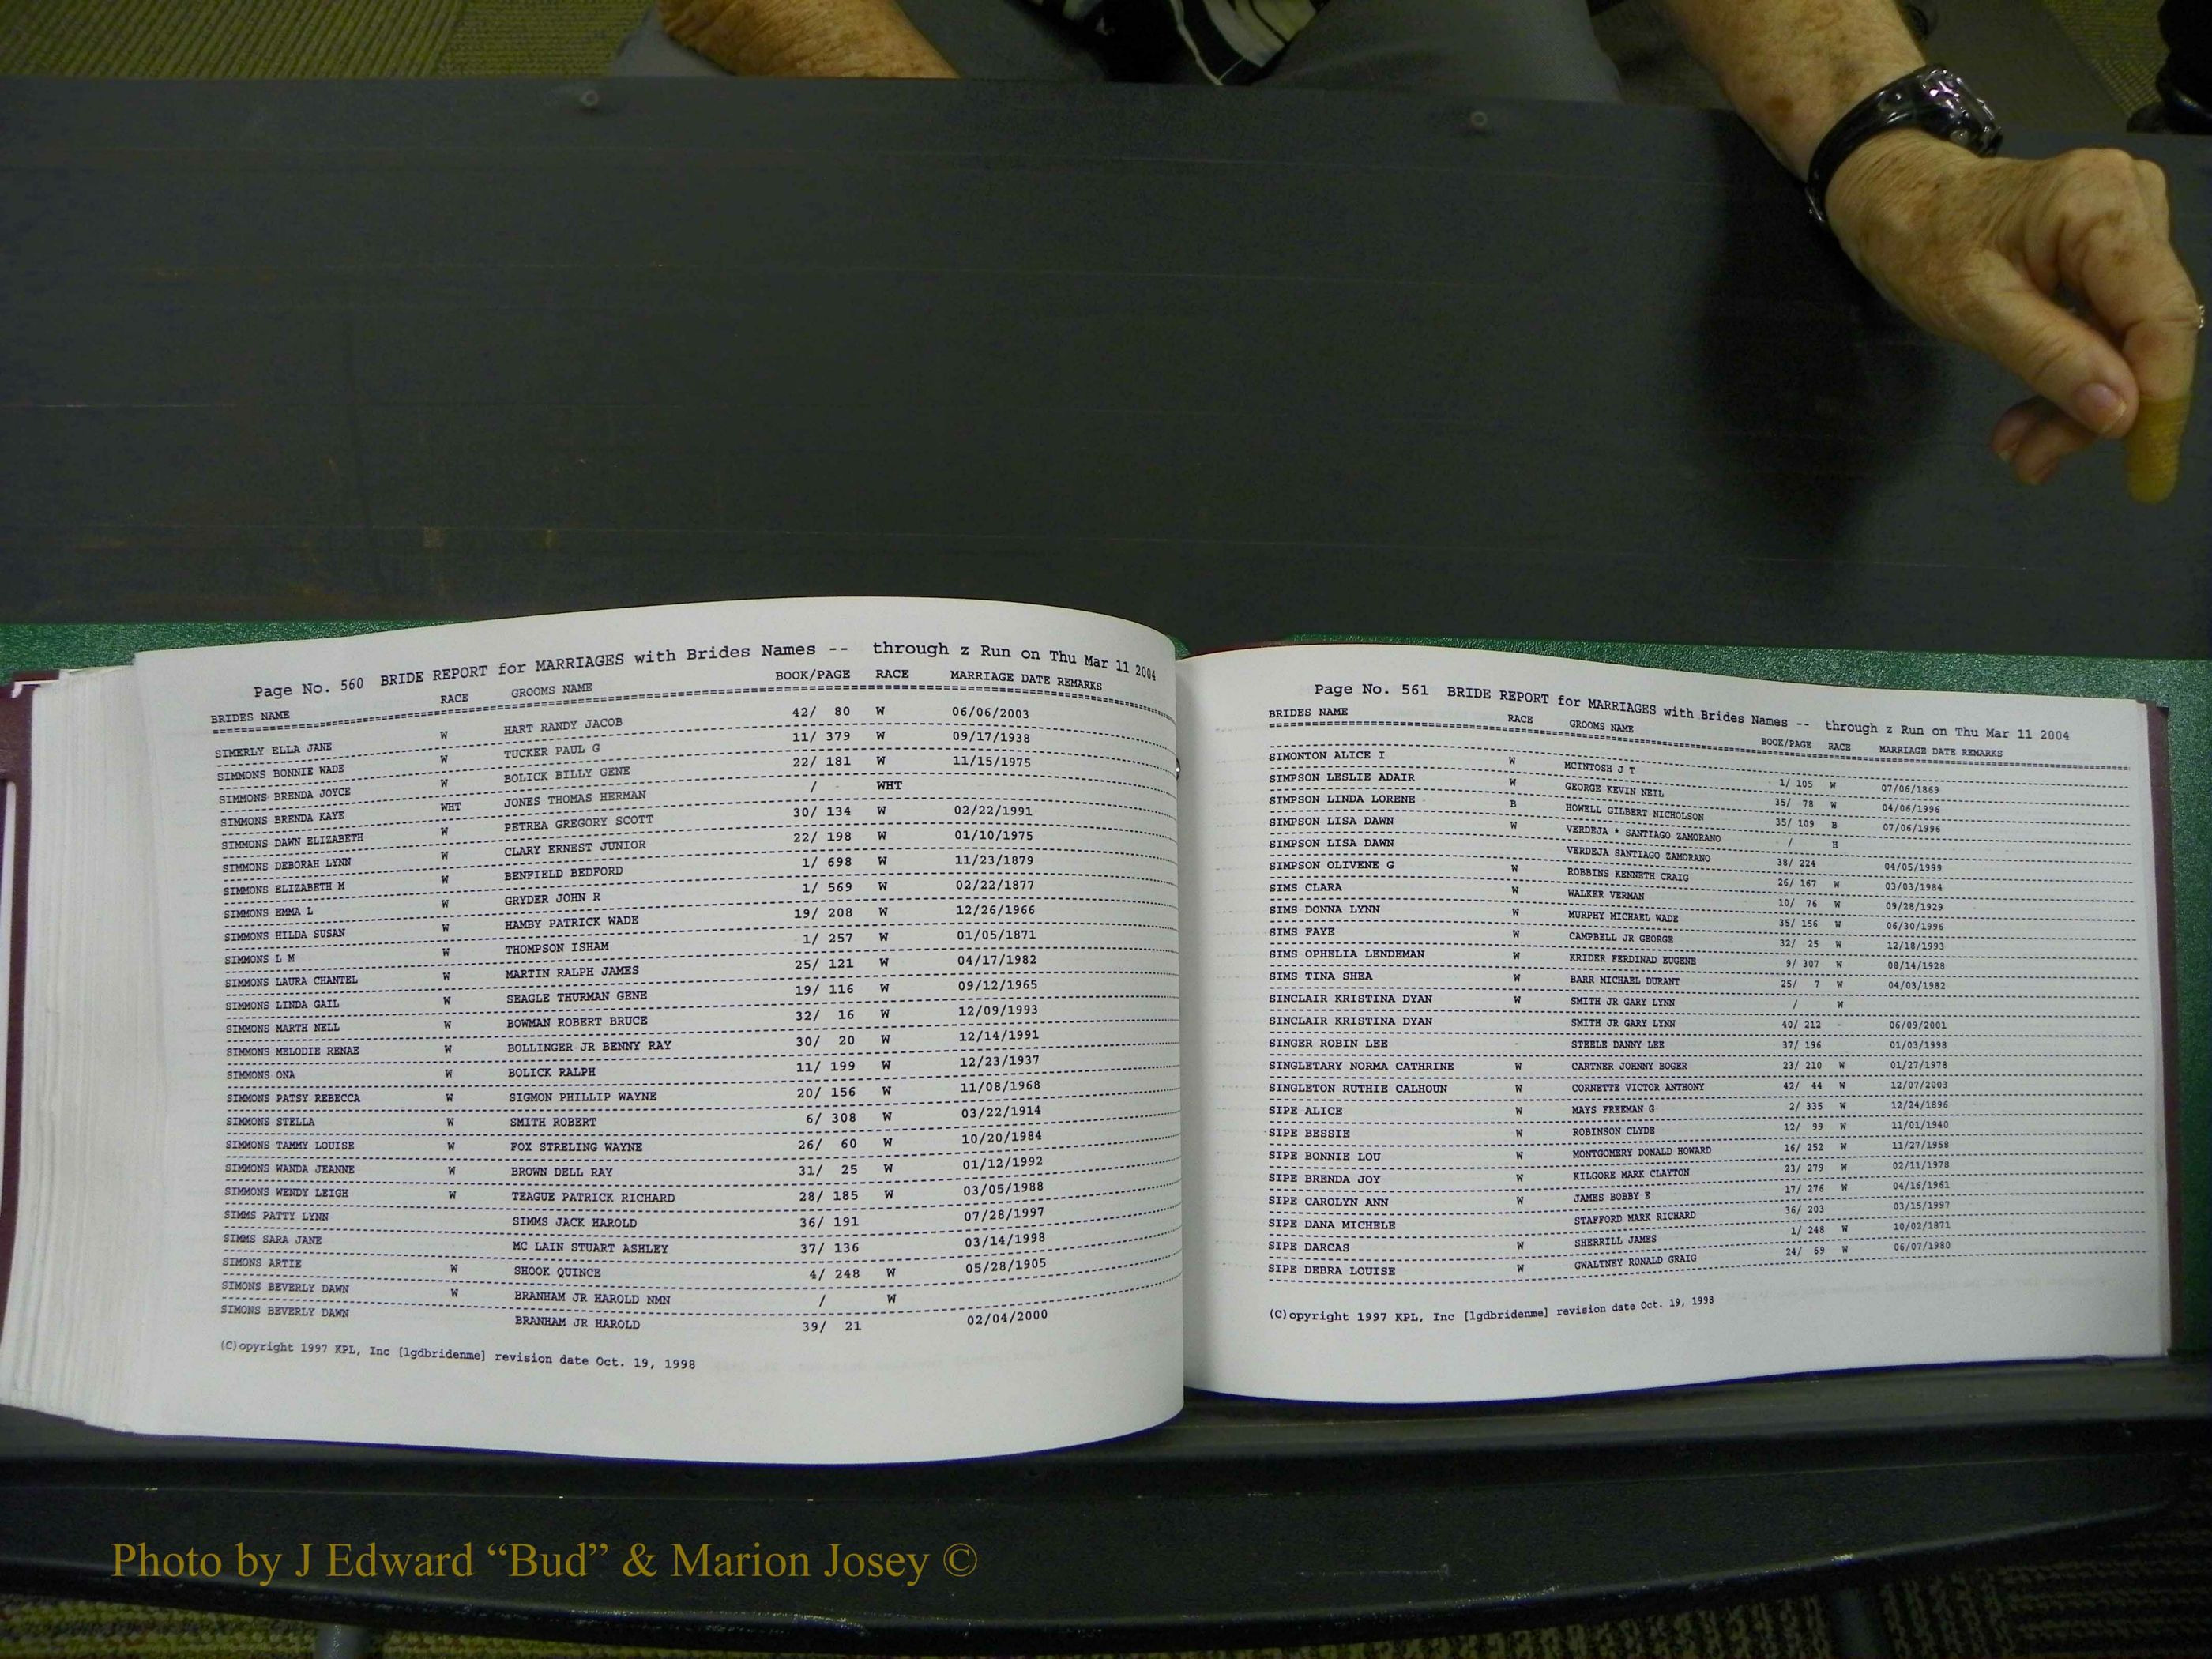 Page No. 560 BRIDE REPORT for MARRIAGES with Brides Names -- through z Run on Thu Mar 11 2004
BRIDES NAME RACE GROOMS NAME BOOK/PAGE RACE MARRIAGE DATE REMARKS
SIMERLY ELLA JANE W HART RANDY JACOB 42/ 80 W 06/06/2003
SIMMONS BONNIE WADE W TUCKER PAUL G 11/ 379 W 09/17/1938
SIMMONS BRENDA JOYCE W BOLICK BILLY GENE 22/ 181 W 11/15/1975
SIMMONS BRENDA KAYE WHT JONES THOMAS HERMAN / WHT
SIMMONS DAWN ELIZABETH W PETREA GREGORY SCOTT 30/ 134 W 02/22/1991
SIMMONS DEBORAH LYNN W CLARY ERNEST JUNIOR 22/ 198 W 01/10/1975
SIMMONS ELIZABETH M W BENFIELD BEDFORD 1/ 698 W 11/23/1879
SIMMONS EMMA L W GRYDER JOHN R 1/ 569 W 02/22/1877
SIMMONS HILDA SUSAN W HAMBY PATRICK WADE 19/ 208 W 12/26/1966
SIMMONS L M W THOMPSON ISHAM 1/ 257 W 01/05/1871
SIMMONS LAURA CHANTEL W MARTIN RALPH JAMES 25/ 121 W 04/17/1982
SIMMONS LINDA GAIL W SEAGLE THURMAN GENE 19/ 116 W 09/12/1965
SIMMONS MARTH NELL W BOWMAN ROBERT BRUCE 32/ 16 W 12/09/1993
SIMMONS MELODIE RENAE W BOLLINGER JR BENNY RAY 30/ 20 W 12/14/1991
SIMMONS ONA W BOLICK RALPH 11/ 199 W 12/23/1937
SIMMONS PATSY REBECCA W SIGMON PHILLIP WAYNE 20/ 156 W 11/08/1968
SIMMONS STELLA W SMITH ROBERT 6/ 308 W 03/22/1914
SIMMONS TAMMY LOUISE W FOX STRELING WAYNE 26/ 60 W 10/20/1984
SIMMONS WANDA JEANNE W BROWN DELL RAY 31/ 25 W 01/12/1992
SIMMONS WENDY LEIGH W TEAGUE PATRICK RICHARD 28/ 185 W 03/05/1988
SIMMS PATTY LYNN SIMMS JACK HAROLD 36/ 191 07/28/1997
SIMMS SARA JANE MC LAIN STUART ASHLEY 37/ 136 03/14/1998
SIMONS ARTIE W SHOOK QUINCE 4/ 248 W 05/28/1905
SIMONS BEVERLY DAWN W BRANHAM JR HAROLD NMN / W
SIMONS BEVERLY DAWN BRANHAM JR HAROLD 39/ 21 02/04/2000
(C)opyright 1997 KPL, Inc [lgdbridenme] revision date Oct. 19, 1998
Page No. 561 BRIDE REPORT for MARRIAGES with Brides Names -- through z Run on Thu Mar 11 2004
BRIDES NAME RACE GROOMS NAME BOOK/PAGE RACE MARRIAGE DATE REMARKS
SIMONTON ALICE I W MCINTOSH J T 1/ 105 W 07/06/1869
SIMPSON LESLIE ADAIR W GEORGE KEVIN NEIL 35/ 78 W 04/06/1996
SIMPSON LINDA LORENE B HOWELL GILBERT NICHOLSON 35/ 109 B 07/06/1996
SIMPSON LISA DAWN W VERDEJA * SANTIAGO ZAMORANO / H
SIMPSON LISA DAWN VERDEJA SANTIAGO ZAMORANO 38/ 224 04/05/1999
SIMPSON OLIVENE G W ROBBINS KENNETH CRAIG 26/ 167 W 03/03/1984
SIMS CLARA W WALKER VERMAN 10/ 76 W 09/28/1929
SIMS DONNA LYNN W MURPHY MICHAEL WADE 35/ 156 W 06/30/1996
SIMS FAYE W CAMPBELL JR GEORGE 32/ 25 W 12/18/1993
SIMS OPHELIA LENDEMAN W KRIDER FERDINAD EUGENE 9/ 307 W 08/14/1928
SIMS TINA SHEA W BARR MICHAEL DURANT 25/ 7 W 04/03/1982
SINCLAIR KRISTINA DYAN W SMITH JR GARY LYNN / W
SINCLAIR KRISTINA DYAN SMITH JR GARY LYNN 40/ 212 06/09/2001
SINGER ROBIN LEE STEELE DANNY LEE 37/ 196 01/03/1998
SINGLETARY NORMA CATHRINE W CARTNER JOHNNY BOGER 23/ 210 W 01/27/1978
SINGLETON RUTHIE CALHOUN W CORNETTE VICTOR ANTHONY 42/ 44 W 12/07/2003
SIPE ALICE W MAYS FREEMAN G 2/ 335 W 12/24/1896
SIPE BESSIE W ROBINSON CLYDE 12/ 99 W 11/01/1940
SIPE BONNIE LOU W MONTGOMERY DONALD HOWARD 16/ 252 W 11/27/1958
SIPE BRENDA JOY W KILGORE MARK CLAYTON 23/ 279 W 02/11/1978
SIPE CAROLYN ANN W JAMES BOBBY E 17/ 276 W 04/16/1961
SIPE DANA MICHELE STAFFORD MARK RICHARD 36/ 203 03/15/1997
SIPE DARCAS W SHERRILL JAMES 1/ 248 W 10/02/1871
SIPE DEBRA LOUISE W GWALTNEY RONALD GRAIG 24/ 69 W 06/07/1980
(C)opyright 1997 KPL, Inc [lgdbridenme] revision date Oct. 19, 1998
Photo by J Edward “Bud” & Marion Josey ©